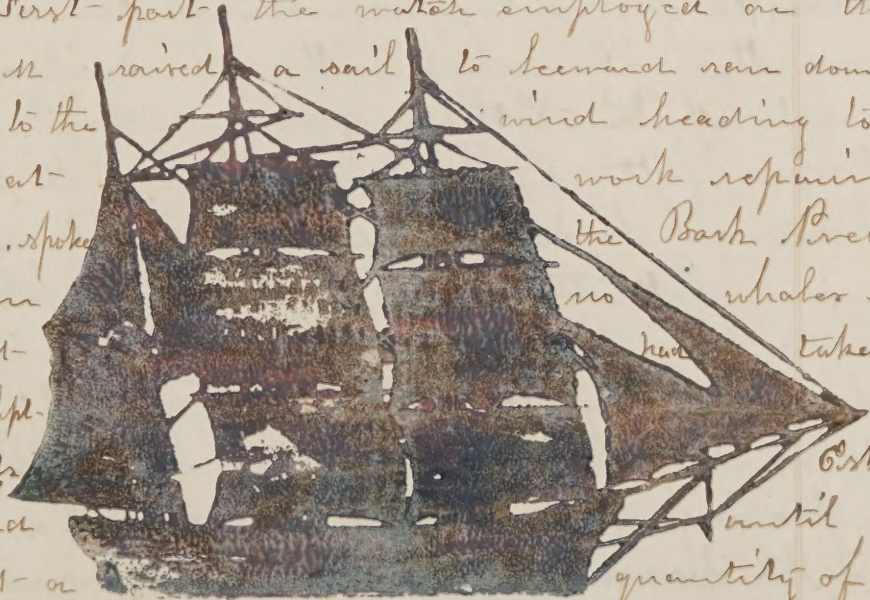 First part the watch employed on
M raised a sail to leeward ran down
to the wind heading to
at work repairin
spoke the Bark
no whales
had take
until
quantity of